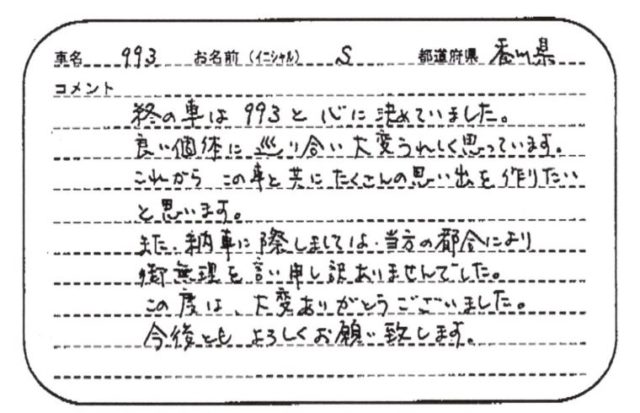 車名 993 お名前(イニシャル) S 都道府県 香川県
コメント
終の車は993と心に決めていました。
良い個体に巡り合い大変うれしく思っています。
これから この車と共にたくさんの思い出を作りたい
と思います。
また、納車に際しましては、当方の都合により
御無理を言い申し訳ありませんでした。
この度は、大変ありがとうございました。
今後とも よろしくお願い致します。